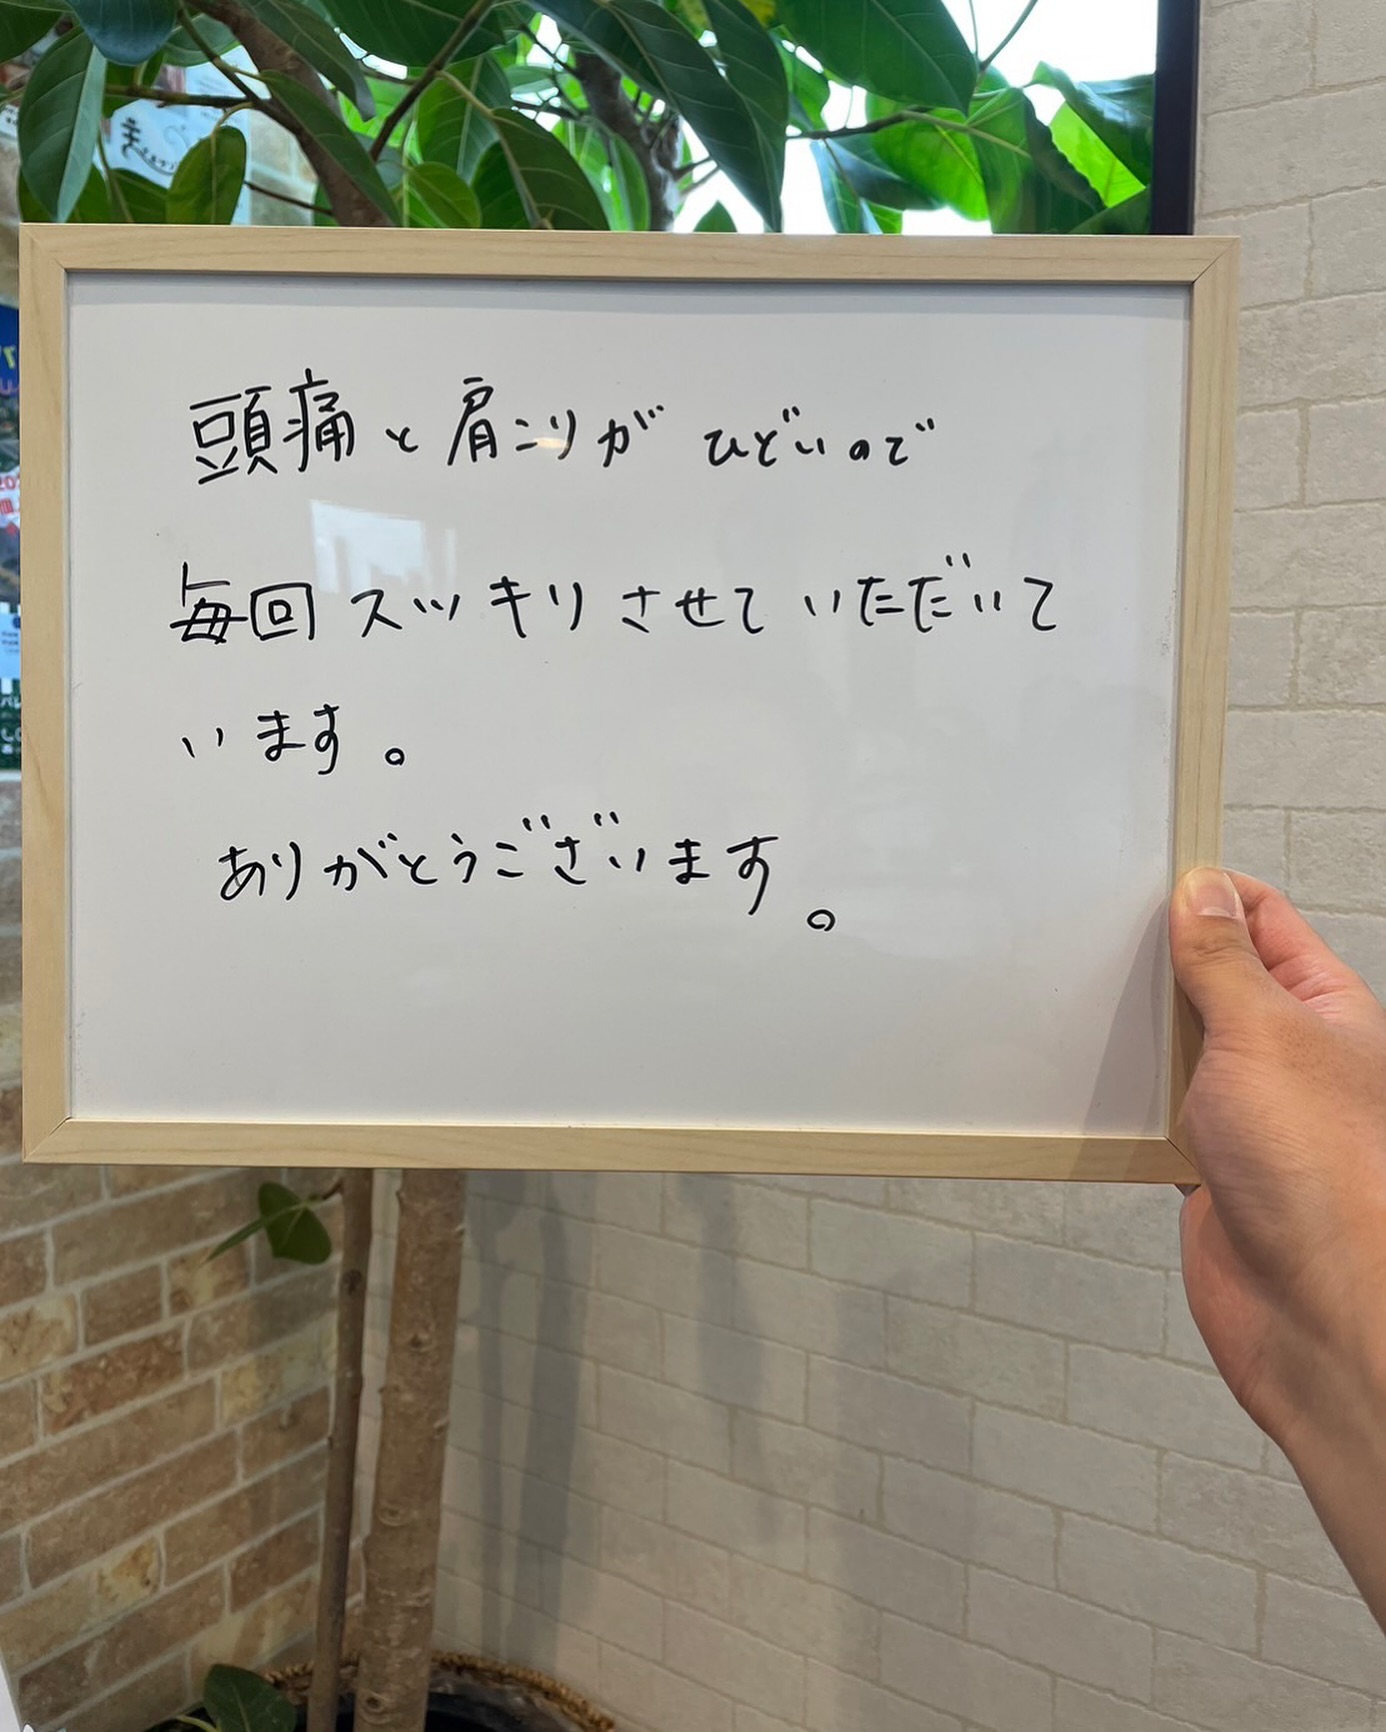 頭痛と肩こりがひどいので
毎回スッキリさせていただいて
います。
ありがとうございます。